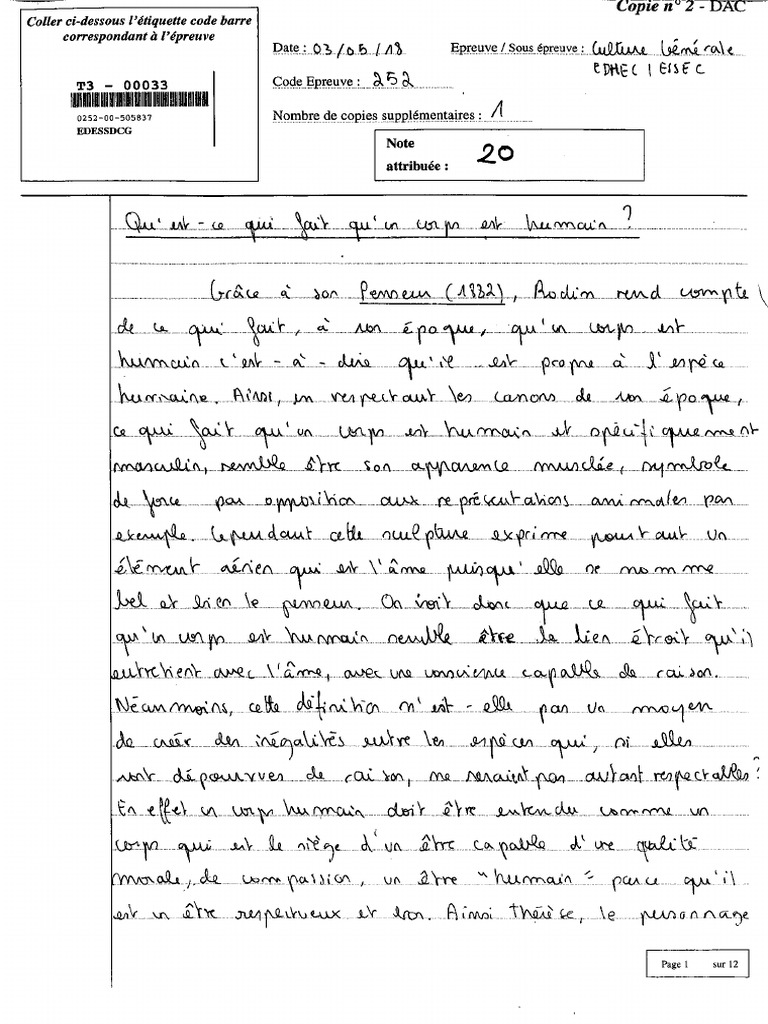 Copie n° 2 - DAC
Coller ci-dessous l'étiquette code barre
correspondant à l'épreuve
T3 - 00033
0252-00-505837
EDESSDCG
Date : 03/05/18
Epreuve / Sous épreuve : Culture Générale
EDHEC | ESSEC
Code Epreuve : 252
Nombre de copies supplémentaires : 1
Note
attribuée : 20
Qu'est-ce qui fait qu'un corps est humain ?
Grâce à son Penseur (1882), Rodin rend compte
de ce qui fait, à son époque, qu'un corps est
humain c'est-à-dire qu'il est propre à l'espèce
humaine. Ainsi, en respectant les canons de son époque,
ce qui fait qu'un corps est humain et spécifiquement
masculin, semble être son apparence musclée, symbole
de force par opposition aux représentations animales par
exemple. Cependant cette sculpture exprime pourtant un
élément aérien qui est l'âme puisqu'elle se nomme
bel et bien le penseur. On voit donc que ce qui fait
qu'un corps est humain semble être le lien étroit qu'il
entretient avec l'âme, avec une conscience capable de raison.
Néanmoins, cette définition n'est-elle pas un moyen
de créer des inégalités entre les espèces qui, si elles
sont dépourvues de raison, ne seraient pas autant respectables ?
En effet un corps humain doit être entendu comme un
corps qui est le siège d'un être capable d'une qualité
morale, de compassion, un être "humain" parce qu'il
est un être respectueux et bon. Ainsi Thérèse, le personnage
Page 1 sur 12